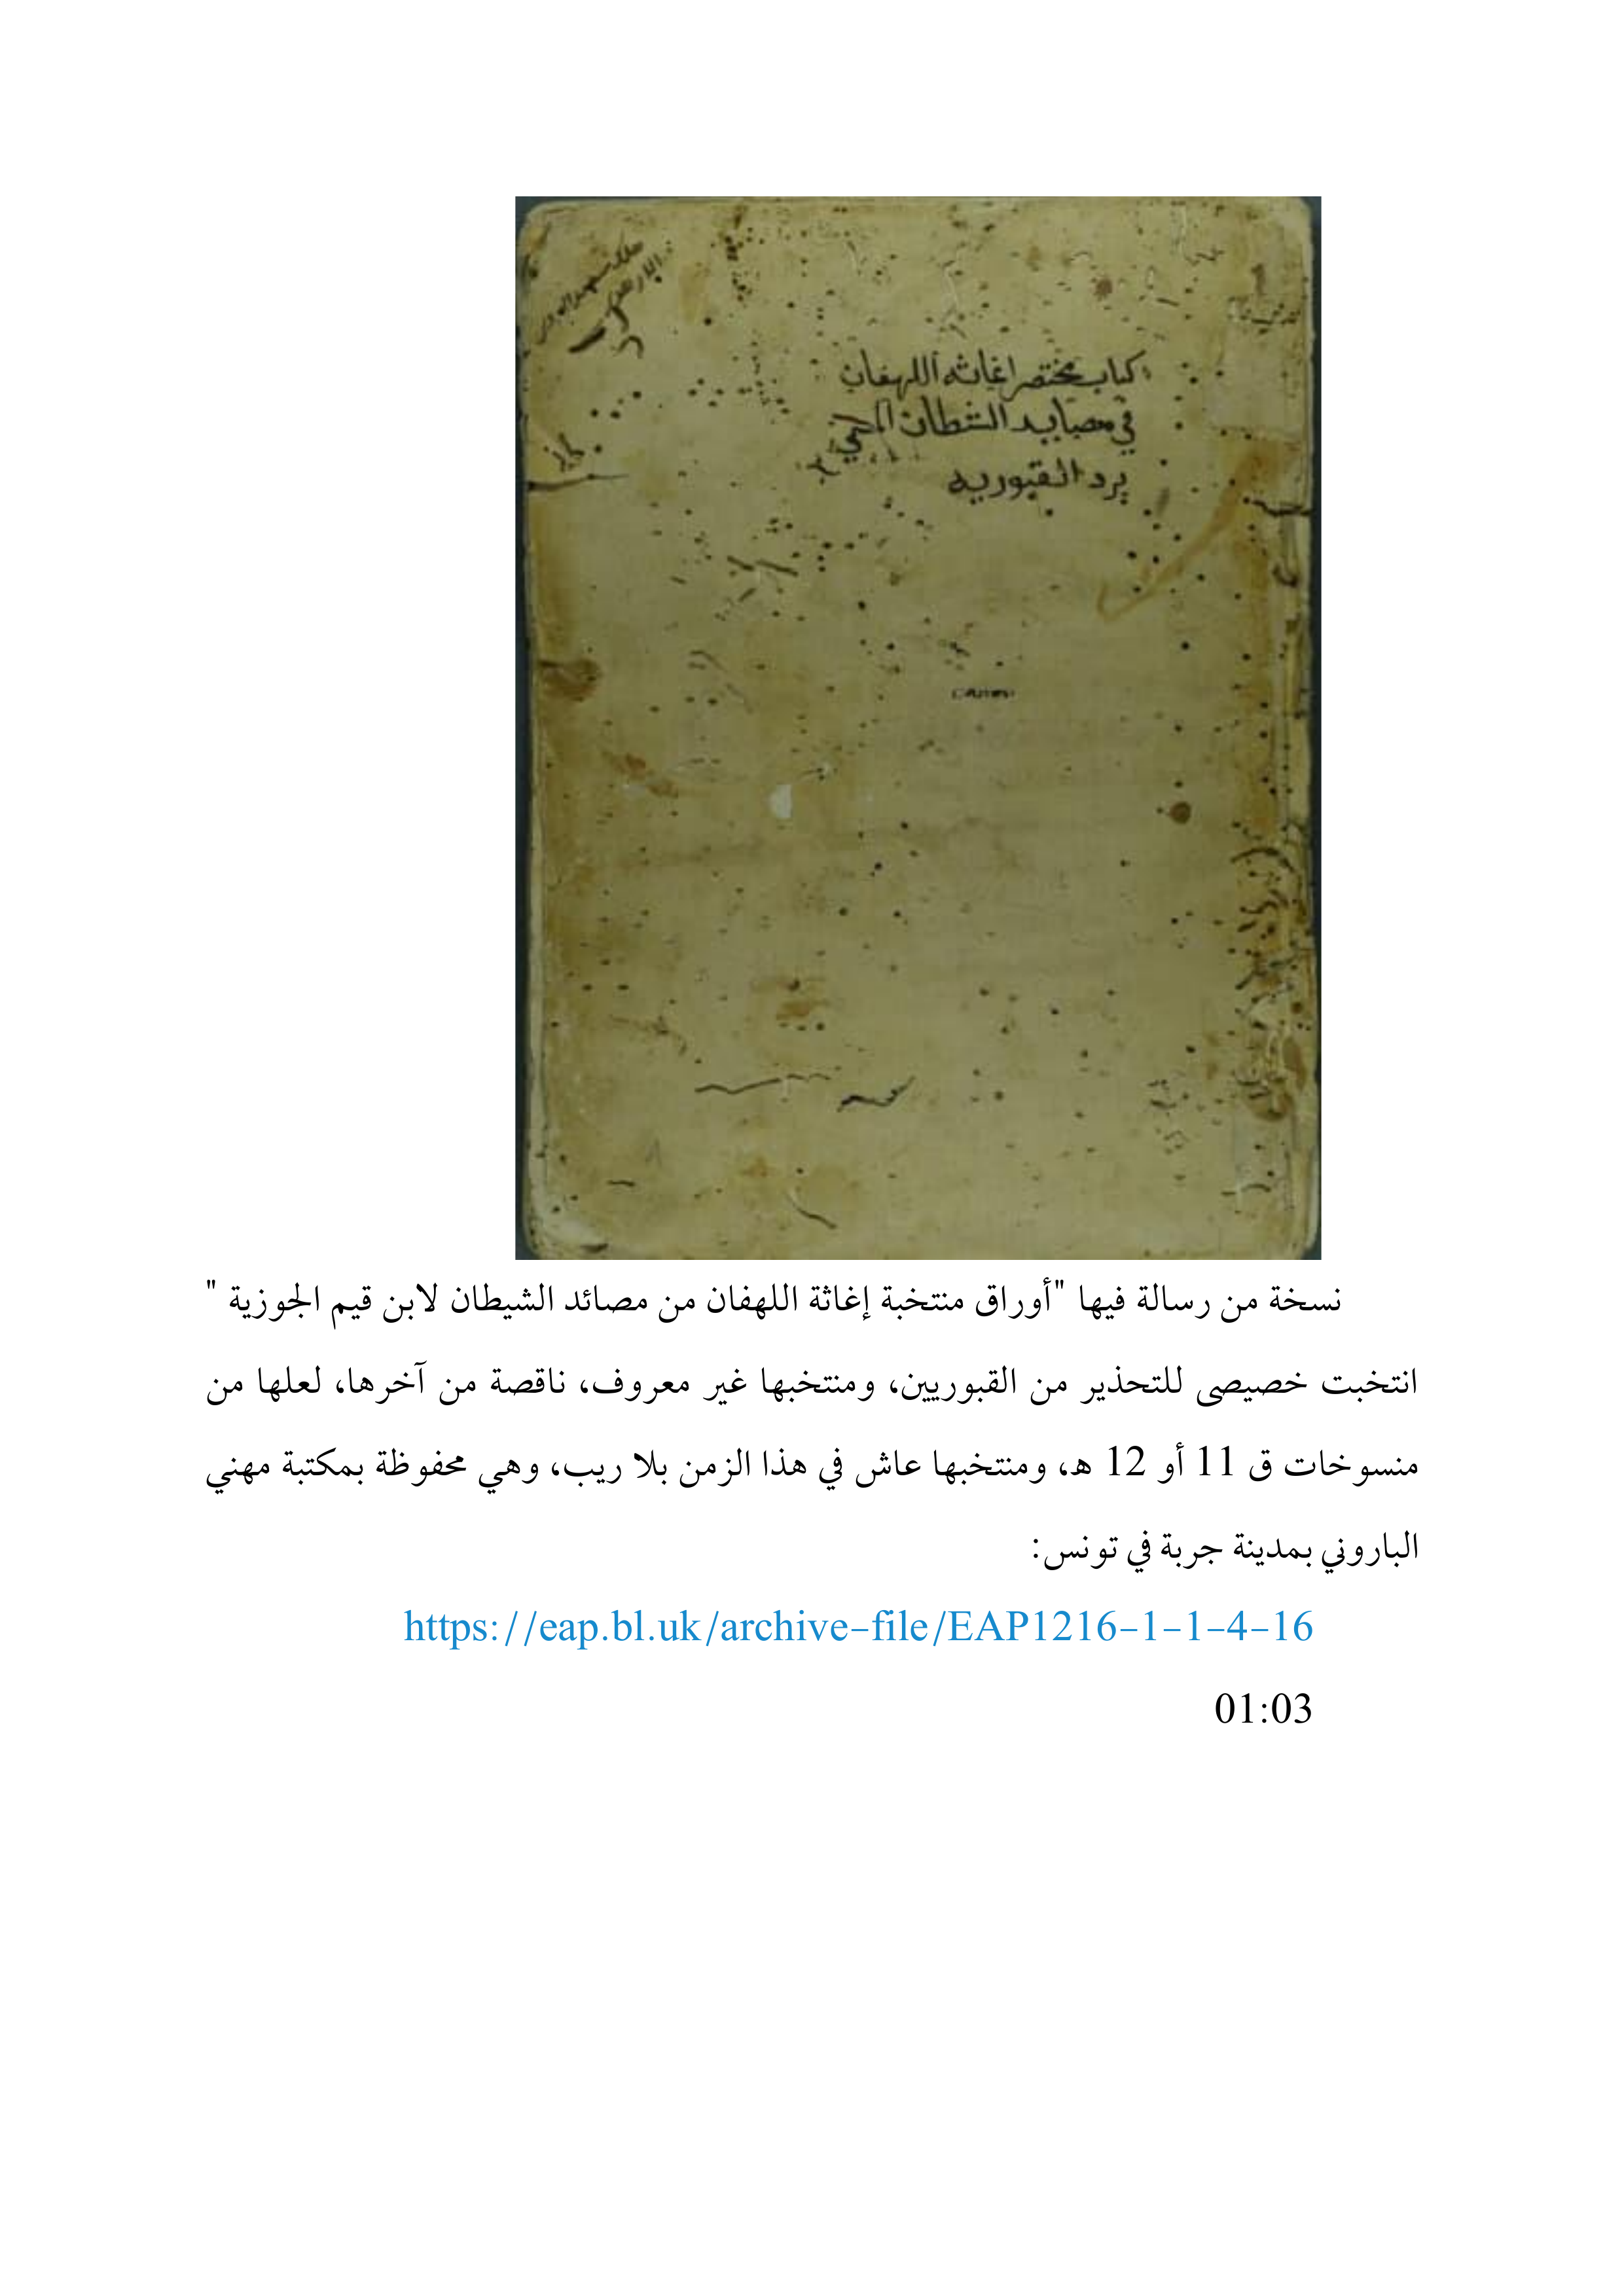 كتاب مختصر اغاثه اللهفان
في مصايد الشطان
برد القبوريه
نسخة من رسالة فيها "أوراق منتخبة إغاثة اللهفان من مصائد الشيطان لابن قيم الجوزية "
انتخبت خصيصى للتحذير من القبوريين، ومنتخبها غير معروف، ناقصة من آخرها، لعلها من
منسوخات ق 11 أو 12 هـ، ومنتخبها عاش في هذا الزمن بلا ريب، وهي محفوظة بمكتبة مهني
الباروني بمدينة جربة في تونس:
https://eap.bl.uk/archive-file/EAP1216-1-1-4-16
01:03